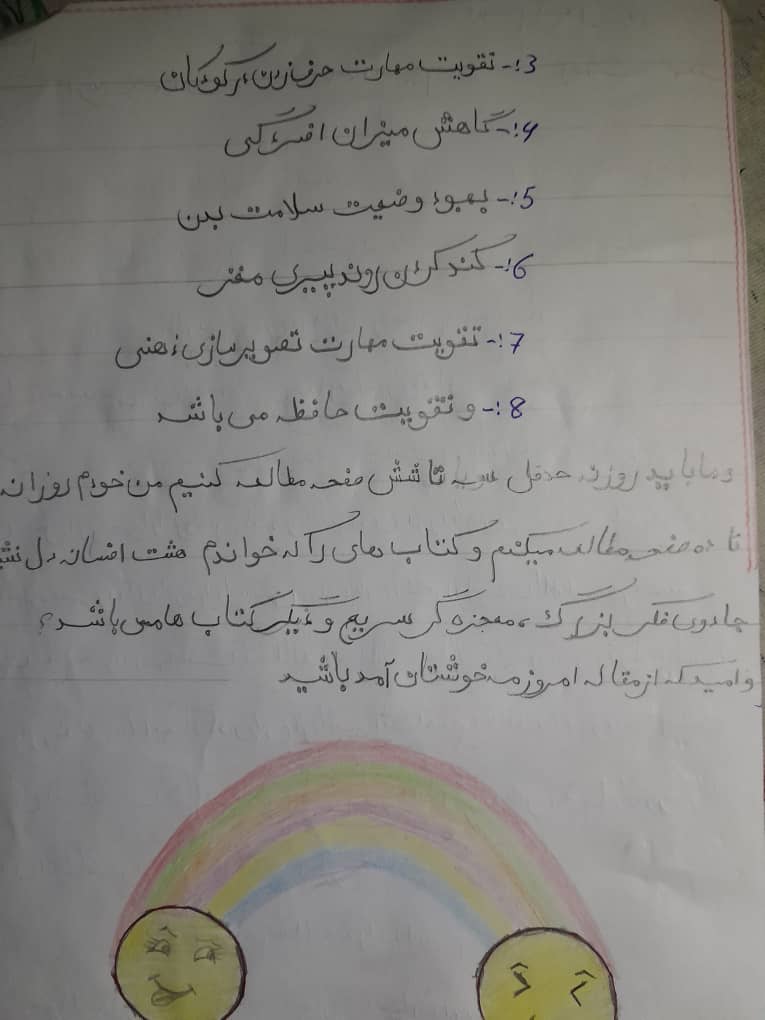 3:- تقویت مهارت حرف زدن در کودکان
4:- کاهش میزان افسردگی
5:- بهبود وضعیت سلامت بدن
6:- کند کردن روند پیری مغز
7:- تقویت مهارت تصویر سازی ذهنی
8:- و تقویت حافظه می باشد
و ما باید روزنه حدقل تا شش صفحه مطالعه کنیم من خودم روزانه
تا ده صفحه مطالعه میکنم و کتاب های را که خواندم هشت افسانه دل
جادوی فکر بزرگ، معجزه گر سریع و دیگر کتاب ها می باشد،
و امید که از مقاله امروزمه خوشتان آمد باشید